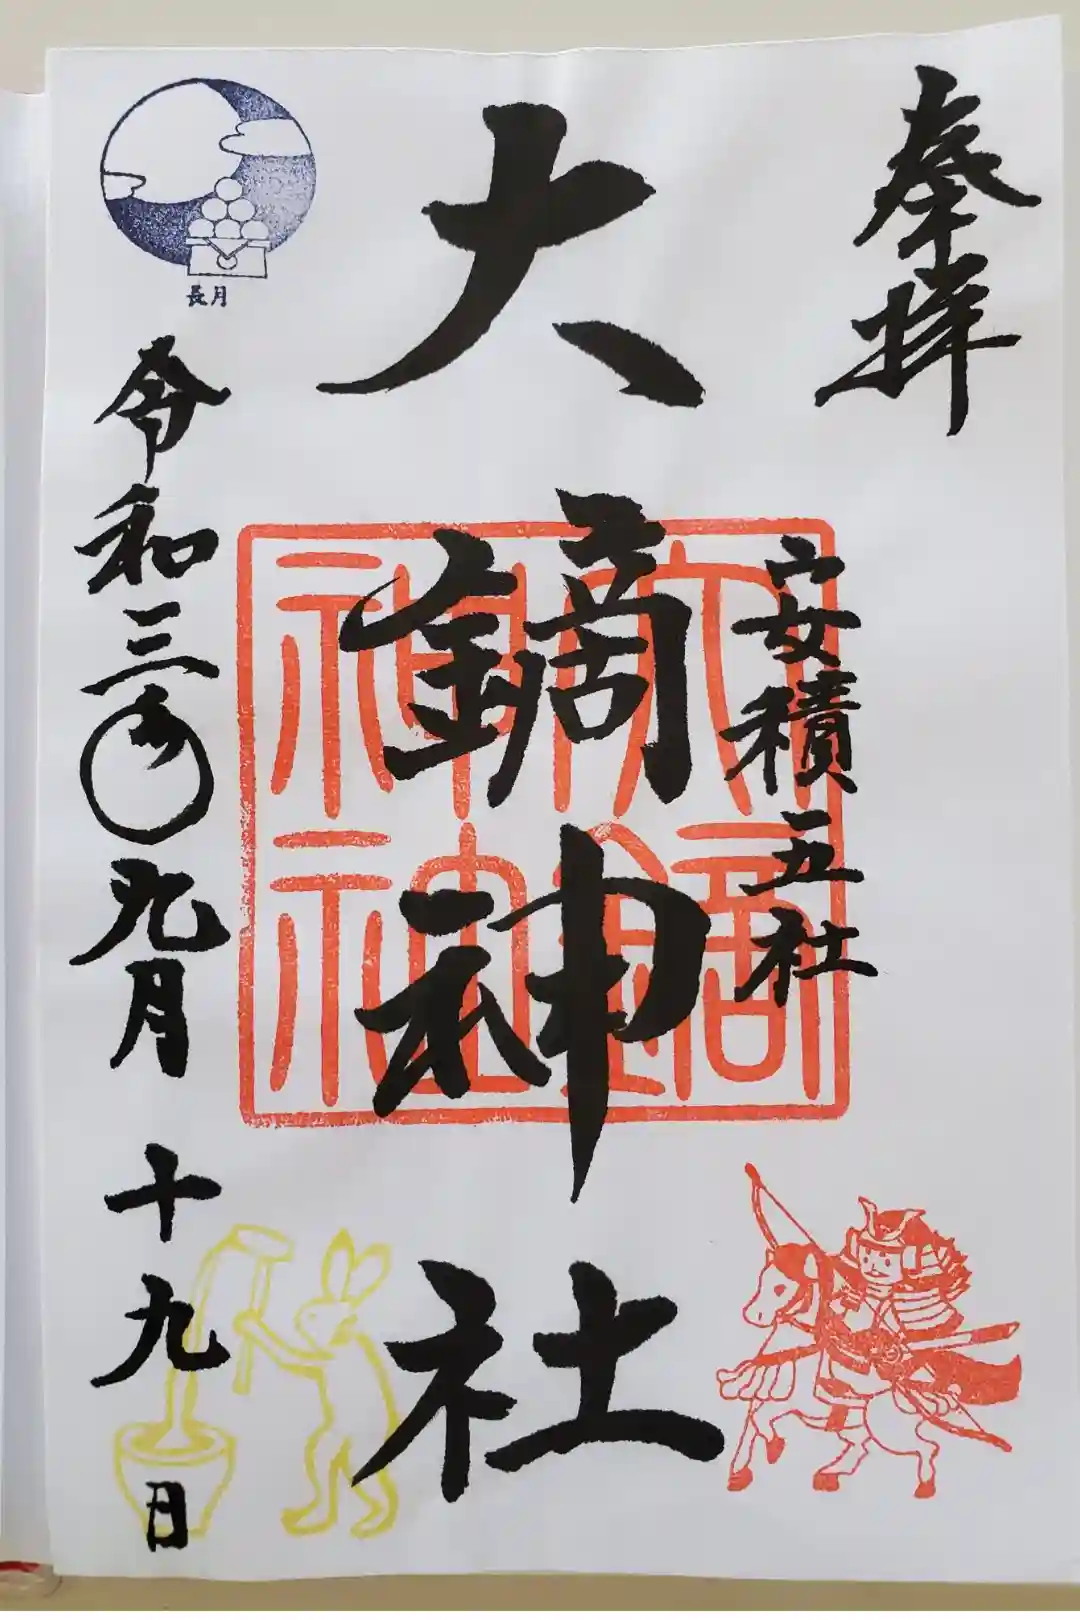 奉拝
安積三社
大鏑神社
令和三年九月十九日
長月
大鏑神社